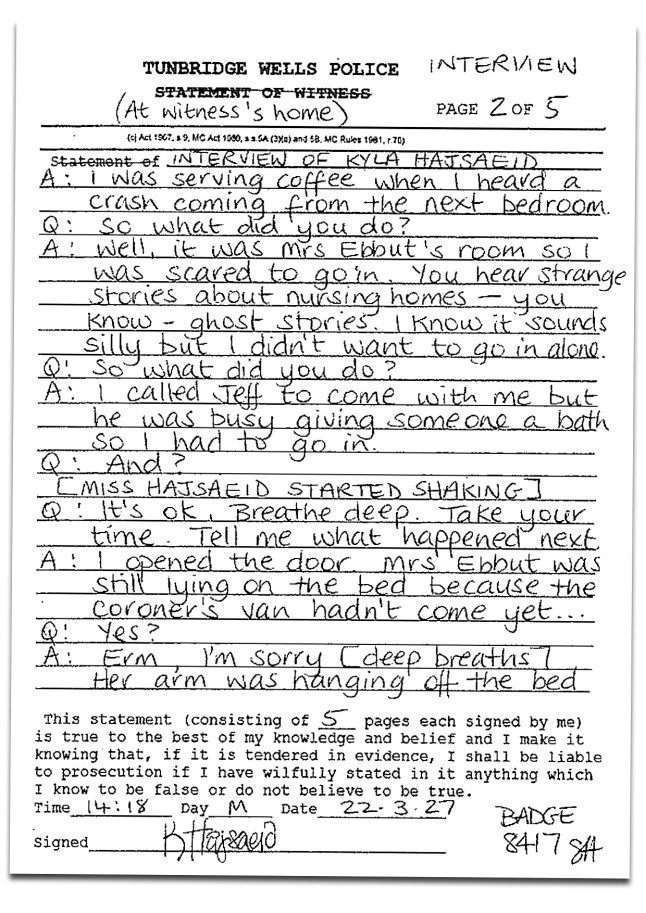 TUNBRIDGE WELLS POLICE INTERVIEW
STATEMENT OF WITNESS
(At witness's home) PAGE 2 OF 5
(c) Act 1967, s.9, MC Act 1980, s.s.5A (3)(a) and 5B, MC Rules 1981, r.70)
Statement of INTERVIEW OF KYLA HAJSAEID
A: I was serving coffee when I heard a
crash coming from the next bedroom.
Q: So what did you do?
A: Well, it was Mrs Ebbut's room so I
was scared to go in. You hear strange
stories about nursing homes – you
know – ghost stories. I know it sounds
silly but I didn't want to go in alone.
Q: So what did you do?
A: I called Jeff to come with me but
he was busy giving someone a bath
so I had to go in.
Q: And?
[MISS HAJSAEID STARTED SHAKING]
Q: It's ok. Breathe deep. Take your
time. Tell me what happened next.
A: I opened the door. Mrs Ebbut was
still lying on the bed because the
coroner's van hadn't come yet...
Q: Yes?
A: Erm, I'm sorry [deep breaths]
Her arm was hanging off the bed
This statement (consisting of 5 pages each signed by me)
is true to the best of my knowledge and belief and I make it
knowing that, if it is tendered in evidence, I shall be liable
to prosecution if I have wilfully stated in it anything which
I know to be false or do not believe to be true.
Time 14:18 Day M Date 22.3.27
BADGE
Signed K Hajsaeid 8417 SH